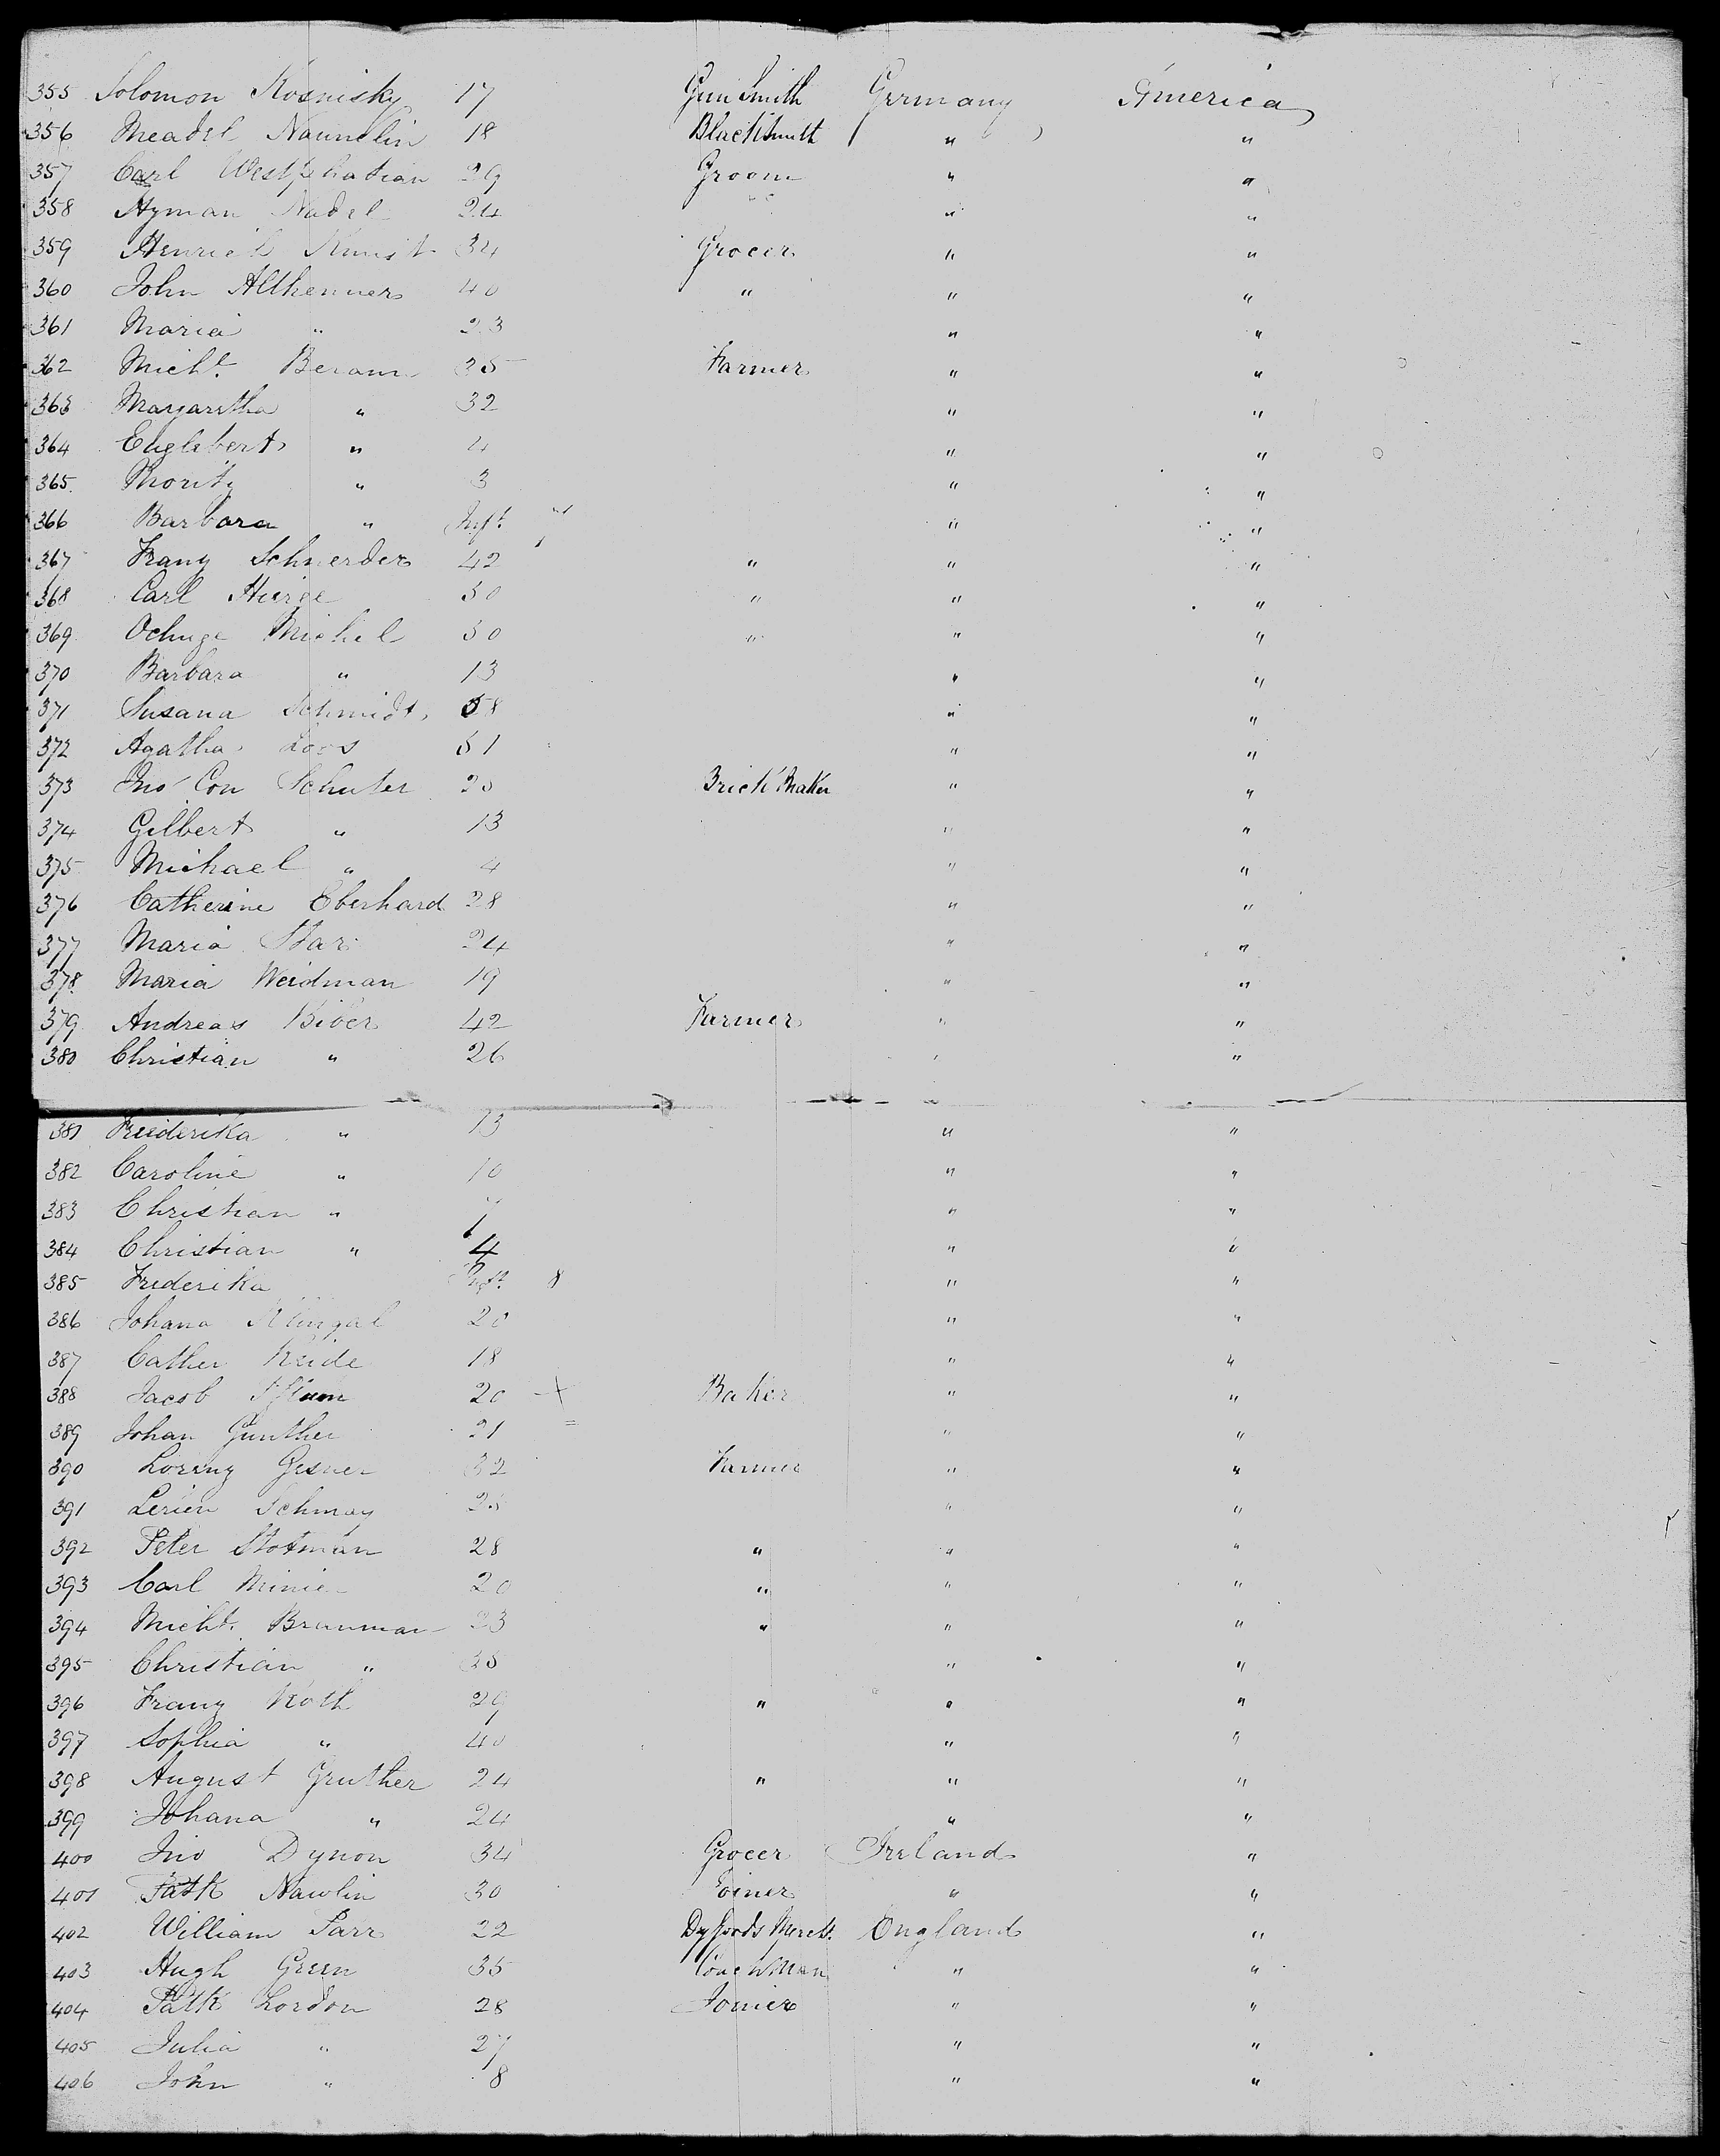 355 Solomon Kosnisky 17 Gun Smith Germany America
356 Meadel Naumelin 18 BlackSmith " "
357 Carl Westphatian 29 Groom " "
358 Hyman Nadel 24 " "
359 Henrich Kunst 34 Grocer " "
360 John Althenner 40 " " "
361 Maria " 23 " "
362 Michl. Beramn 35 Farmer " "
363 Margaretha " 32 " "
364 Englebert " 4 " "
365 Moritz " 3 " "
366 Barbara " Inft " "
367 Franz Schnerder 42 " " "
368 Carl 50 " " "
369 Michel 50 " " "
370 Barbara " 13 " "
371 Susana Schmidt 58 " "
372 Agatha Loos 51 " "
373 Jno Con Schuter Brick Maker " "
374 Gilbert " 13 " "
375 Michael " 4 " "
376 Catherine Eberhard 28 " "
377 Maria Star 24 " "
378 Maria Weidman 19 " "
379 Andreas Biber 42 Farmer " "
380 Christian " 26 " "
381 Friederika " 13 " "
382 Caroline " 10 " "
383 Christian " 7 " "
384 Christian " 4 " "
385 Frederika Inft 8 " "
386 Johana 20 " "
387 Cather 18 " "
388 Jacob 20 + Baker " "
389 Johan Gunther 21 " "
390 Lorenz Gesner 32 Farmer " "
391 Schmay " "
392 Peter Stotman 28 " " "
393 Carl Minier 20 " " "
394 Michl. Braunman 23 " " "
395 Christian " 35 " "
396 Franz Roth 29 " " "
397 Sophia " 40 " "
398 August Gruther 24 " " "
399 Johana " 24 " "
400 Jno Dynon 34 Grocer Ireland "
401 Patk Nawlin 30 Joiner " "
402 William Parr 22 Dy Goods Mercht. England "
403 Hugh Green 35 Coachman " "
404 Patk Lordon 28 Joiner " "
405 Julia " 27 " "
406 John " 8 " "